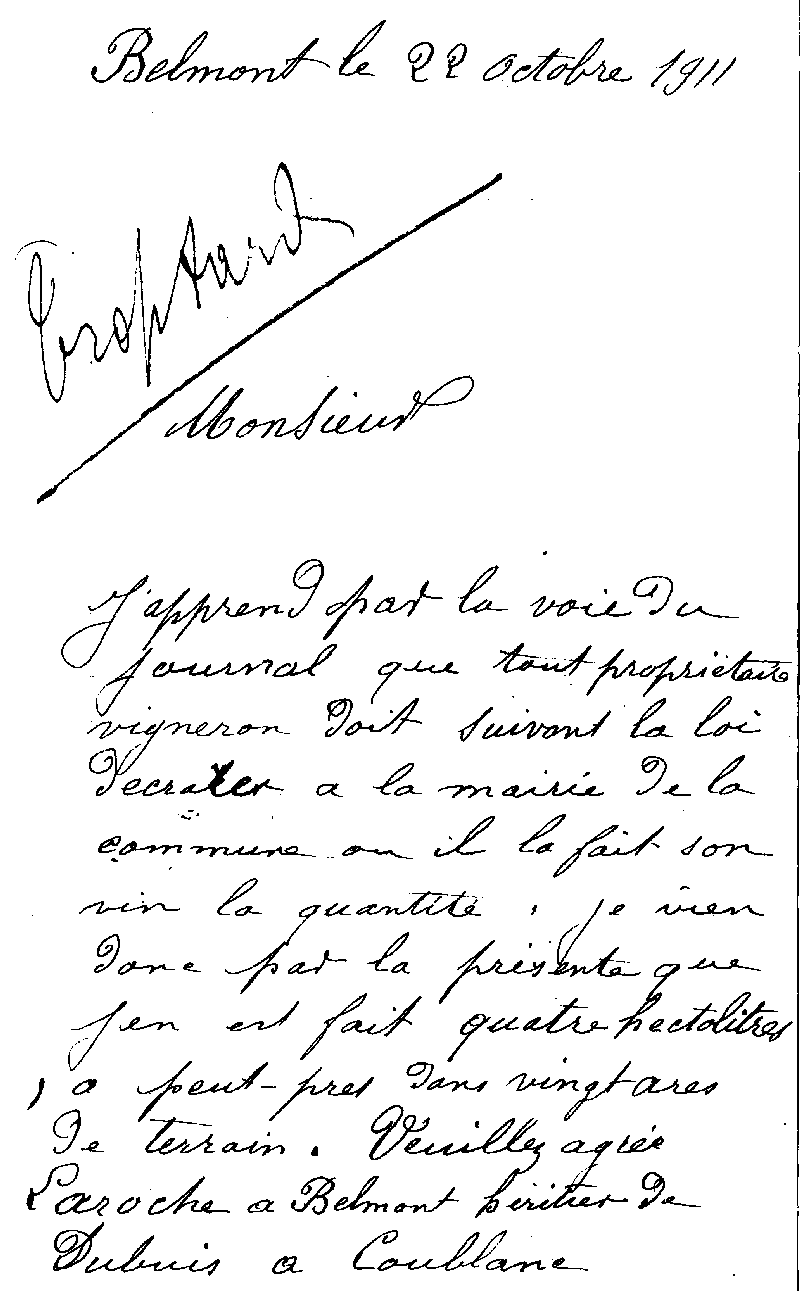 Belmont le 22 octobre 1911
Trop tard
Monsieur
J'apprend par la voie du
journal que tout proprietaire
vigneron doit suivant la loi
decrater a la mairie de la
commune ou il la fait son
vin la quantité, je vien
donc par la présente que
j'en est fait quatre hectolitres
, a peut-pres dans vingt ares
de terrain. Veuillez agréé
Laroche a Belmont héritier de
Dubuis a Coublanc